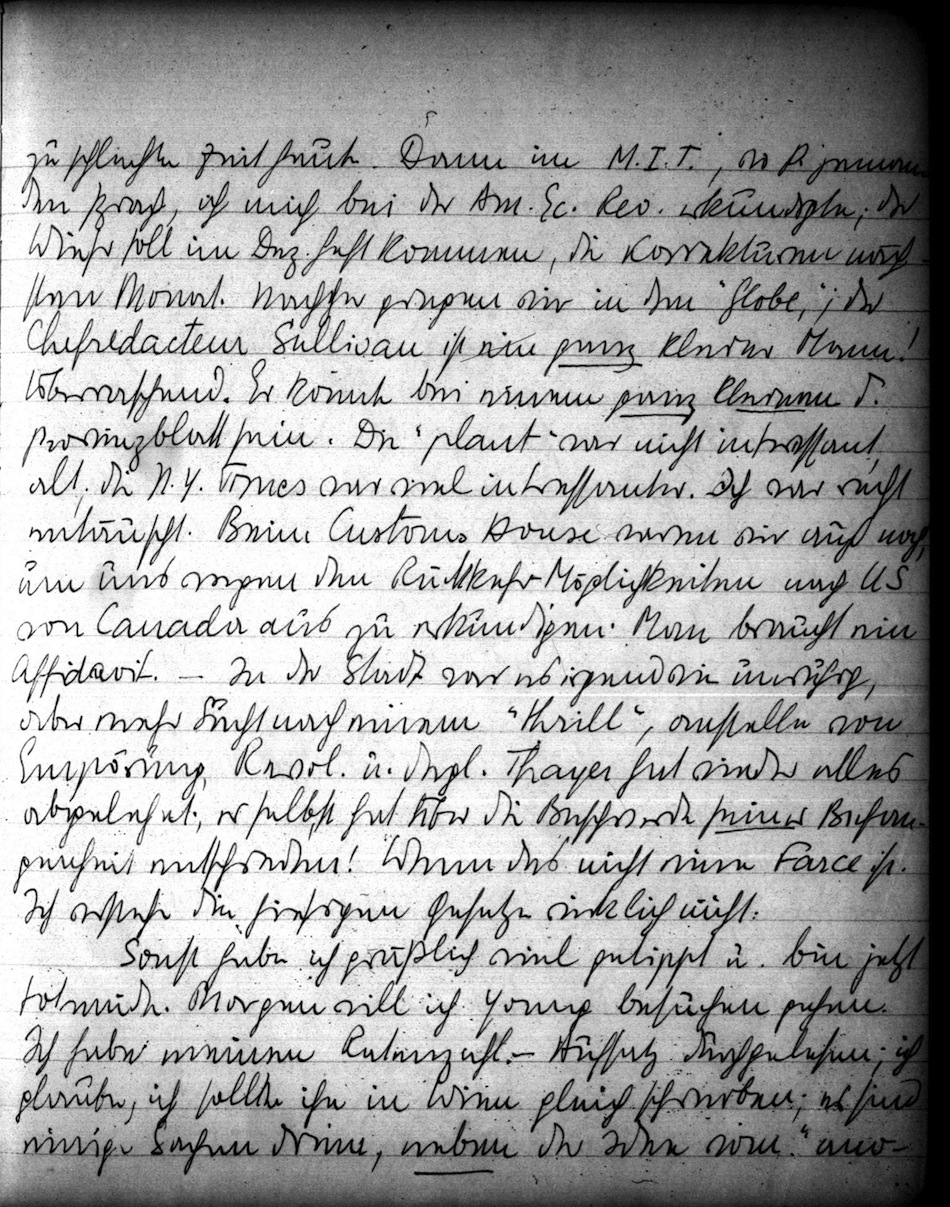 zu schlechte Zeit heute. Dann im M.I.T., wo P. jeman-
den sprach, ich mich bei der Am. Ec. Rev. erkundigte; der
Wieser soll im Dez. heft kommen, die Korrekturen näch-
sten Monat. Nachher gingen wir in den "Globe"; der
Chefredacteur Sullivan ist ein ganz kleiner Mann!
Überraschend. Er könnte bei einem ganz kleinen d.
Provinzblatt sein. Die "plant" war nicht interessant,
alt, die N.Y. Times war viel interessanter. Ich war recht
enttäuscht. Beim Customs House waren wir auch noch,
um uns wegen den Rückkehr-Möglichkeiten nach US
von Canada aus zu erkundigen. Man braucht ein
Affidavit. – In der Stadt war es irgendwie unruhig,
aber mehr Sucht nach einem "thrill", anstelle von
Empörung, Revol. u. dergl. Thayer hat wieder alles
abgelehnt; er selbst hat über die Beschwerde seiner Befan-
genheit entschieden! Wenn das nicht eine Farce ist.
Ich verstehe die hiesigen Gesetze wirklich nicht.
Sonst habe ich gräßlich viel getippt u. bin jetzt
totmüde. Morgen will ich Young besuchen gehen.
Ich habe meinen Ratenzahl.– Aufsatz durchgelesen; ich
glaube, ich sollte ihn in Wien gleich schreiben; es sind
einige Sachen drinn, neben der Idee vom